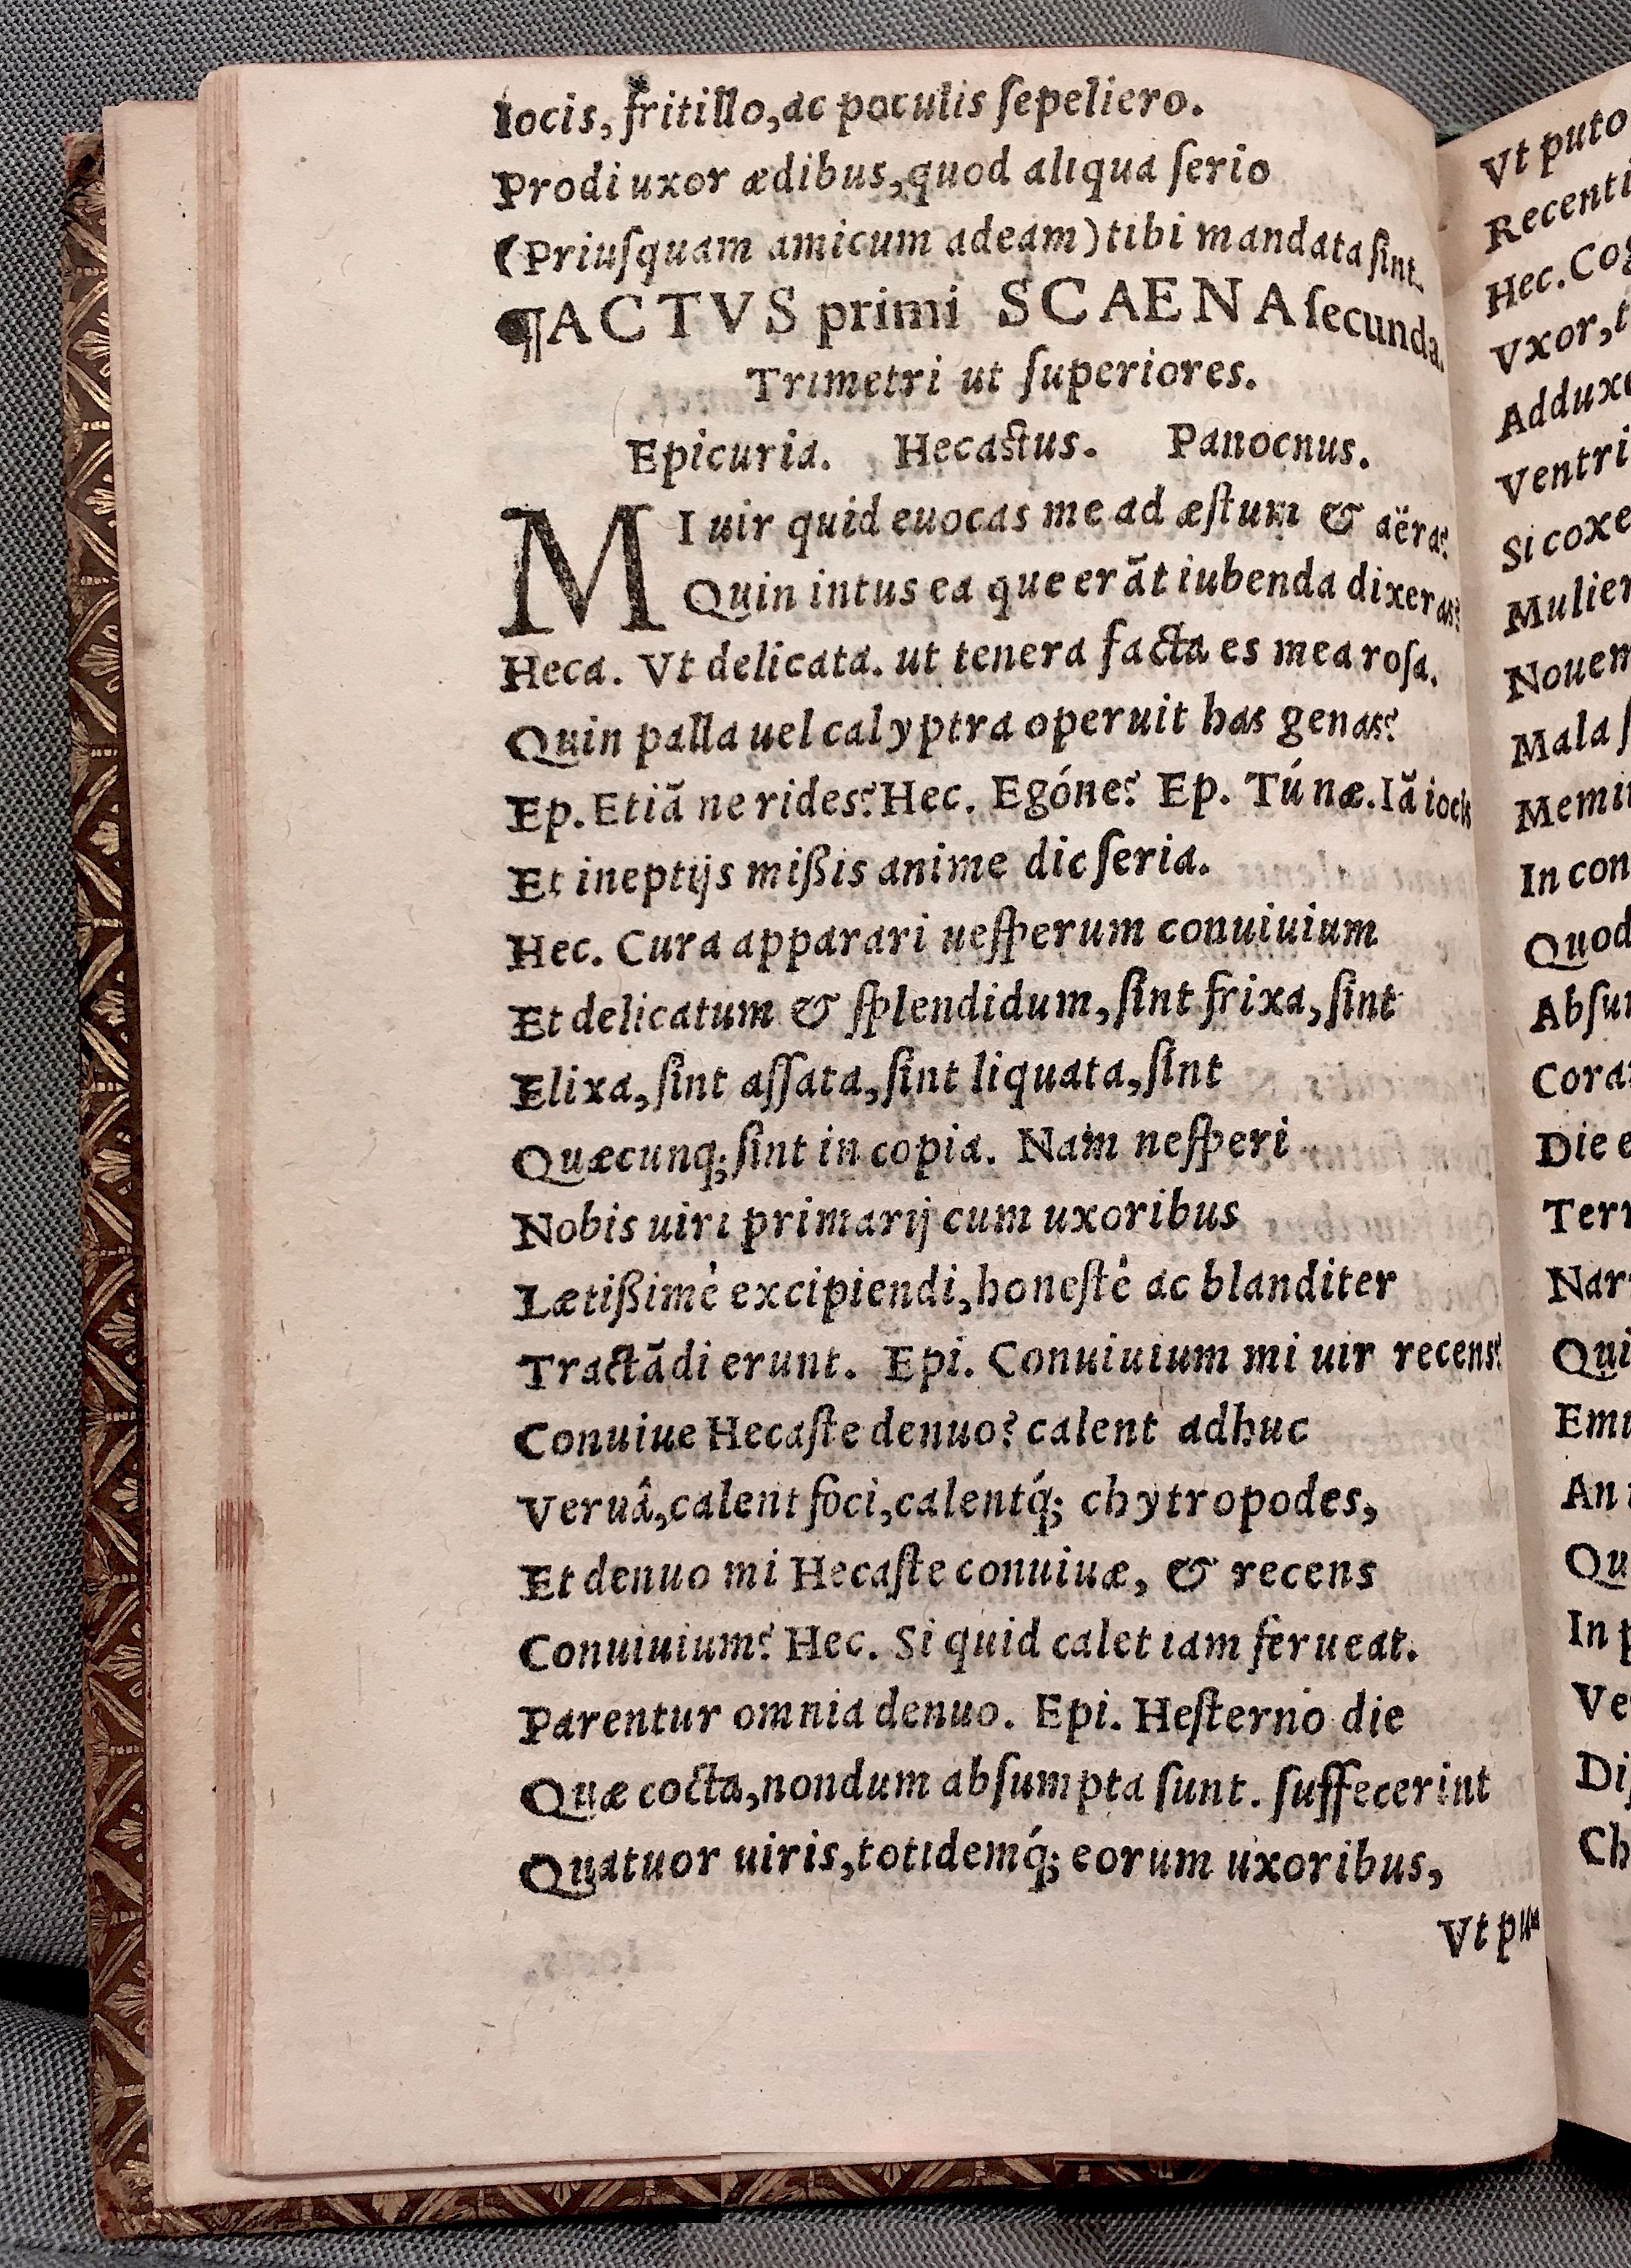 Iocis, fritillo, ac poculis ſepeliero.
Prodi uxor ædibus, quod aliqua ſerio
(Priuſquam amicum adeam) tibi mandata ſint.
¶ACTVS primi SCAENA ſecunda.
Trimetri ut ſuperiores.
Epicuria. Hecaſtus. Panocnus.
MI uir quid euocas me ad æſtum & aëra?
Quin intus ea que erãt iubenda dixeras?
Heca. Vt delicata. ut tenera facta es mea roſa.
Quin palla uel calyptra operuit has genas?
Ep. Etiã ne rides? Hec. Egóne? Ep. Tú næ. Iã iocis
Et ineptijs mißis anime dic ſeria.
Hec. Cura apparari ueſperum conuiuium
Et delicatum & ſplendidum, ſint frixa, ſint
Elixa, ſint aſſata, ſint liquata, ſint
Quæcunq; ſint in copia. Nam neſperi
Nobis uiri primarij cum uxoribus
Lætißimè excipiendi, honeſtè ac blanditer
Tractãdi erunt. Epi. Conuiuium mi uir recens?
Conuiue Hecaſte denuo? calent adhuc
Veruâ, calent foci, calentq́; chytropodes,
Et denuo mi Hecaſte conuiuæ, & recens
Conuiuium? Hec. Si quid calet iam ferueat.
Parentur omnia denuo. Epi. Heſterno die
Quæ cocta, nondum abſumpta ſunt. ſuffecerint
Quatuor uiris, totidemq́; eorum uxoribus,
Vt puto
Vt puto
Recenti
Hec. Cog
Vxor, t
Adduxe
Ventri
Si coxe
Mulier
Nouem
Mala ſ
Memin
In con
Quod
Abſu
Cora
Die e
Terr
Nar
Qui
Emu
An
Qu
In p
Ve
Diſ
Ch